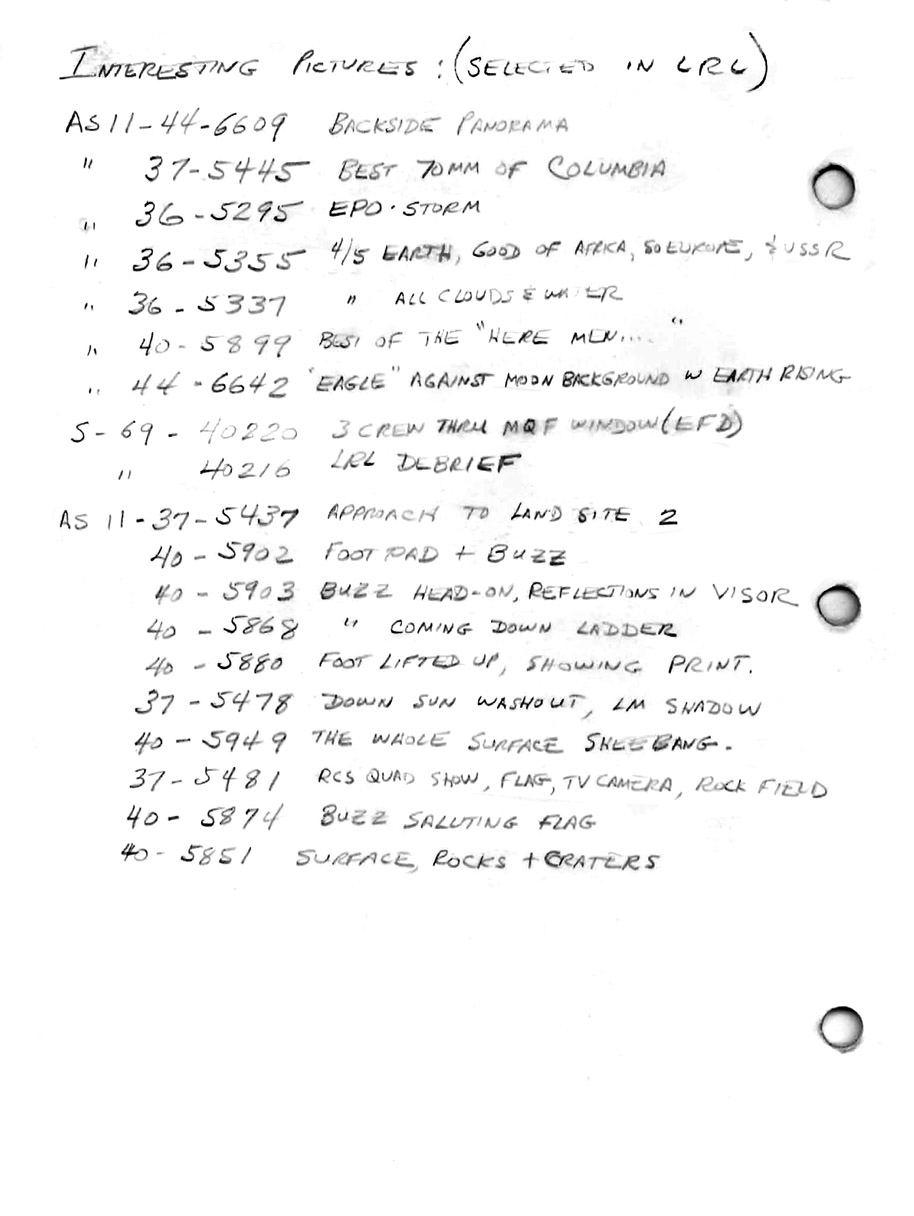 INTERESTING PICTURES: (SELECTED IN LRL)
AS 11-44-6609 BACKSIDE PANORAMA
" 37-5445 BEST 70MM OF COLUMBIA
" 36-5295 EPO·STORM
" 36-5355 4/5 EARTH, GOOD OF AFRICA, SO EUROPE, & USSR
" 36-5337 " ALL CLOUDS & WATER
" 40-5899 BEST OF THE "HERE MEN...."
" 44-6642 "EAGLE" AGAINST MOON BACKGROUND W EARTH RISING
S-69-40220 3 CREW THRU MQF WINDOW (EFD)
" 40216 LRL DEBRIEF
AS 11-37-5437 APPROACH TO LAND SITE 2
40-5902 FOOT PAD + BUZZ
40-5903 BUZZ HEAD-ON, REFLECTIONS IN VISOR
40-5868 " COMING DOWN LADDER
40-5880 FOOT LIFTED UP, SHOWING PRINT.
37-5478 DOWN SUN WASHOUT, LM SHADOW
40-5949 THE WHOLE SURFACE SHEEBANG.
37-5481 RCS QUAD SHOW, FLAG, TV CAMERA, ROCK FIELD
40-5874 BUZZ SALUTING FLAG
40-5851 SURFACE, ROCKS + CRATERS